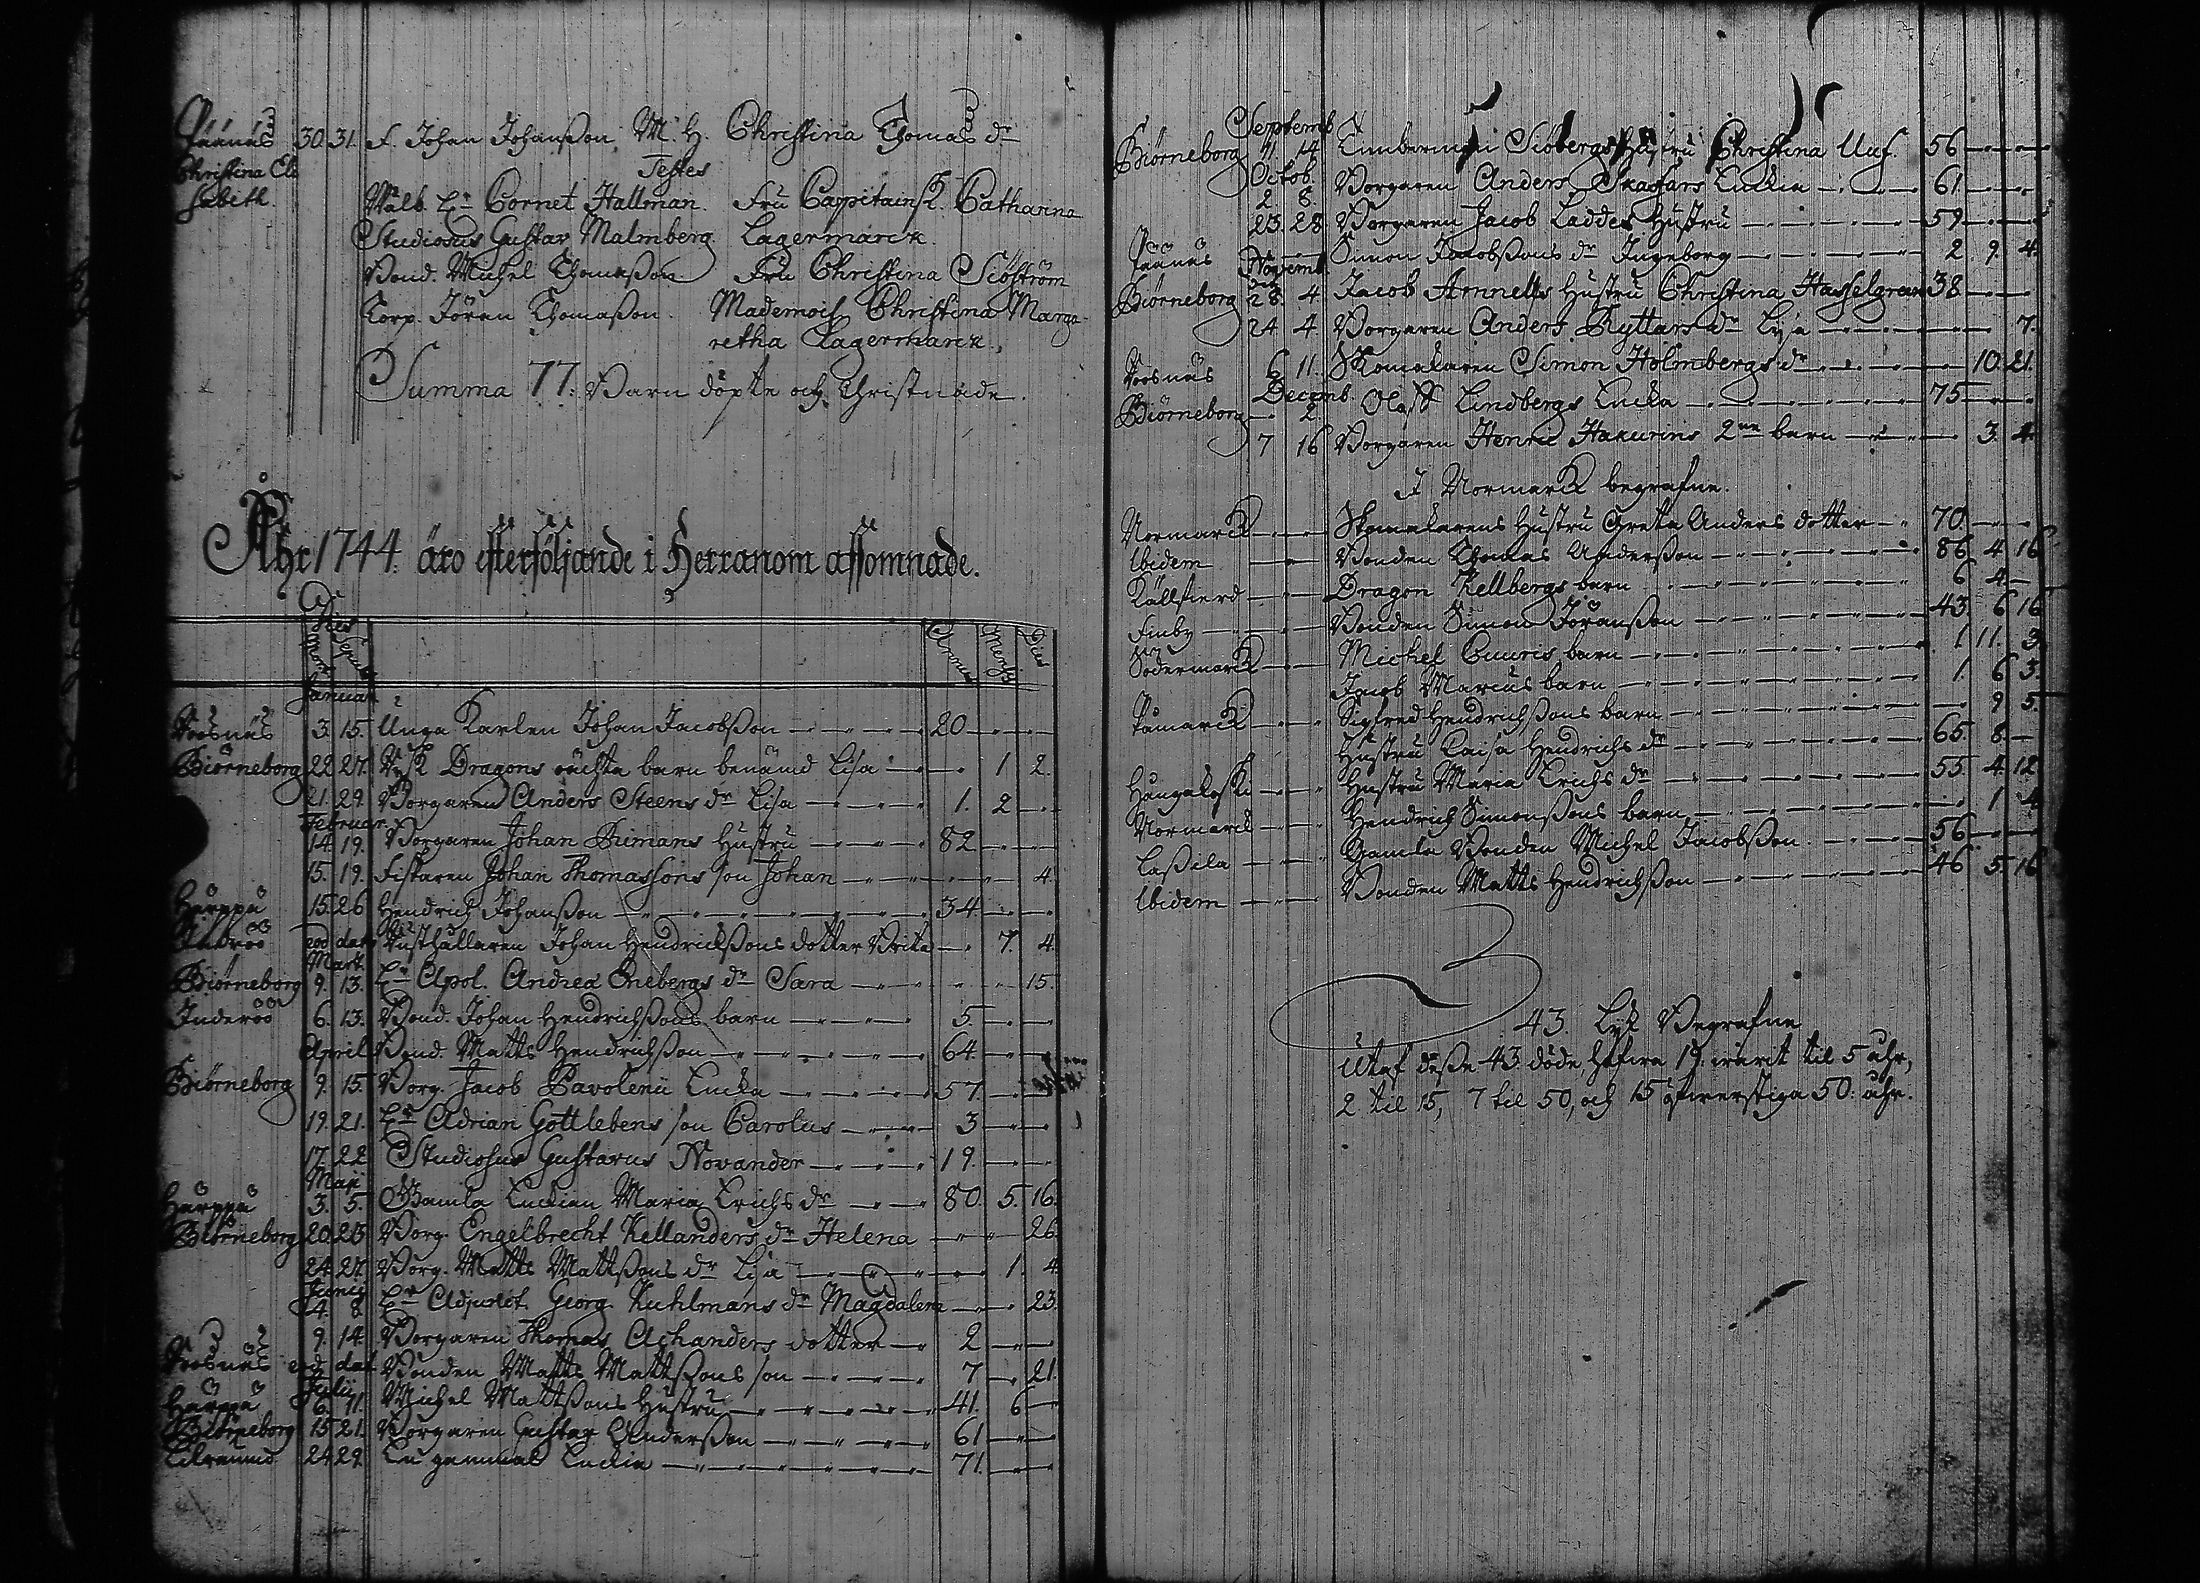 Påånäs 30. 31. F. Johan Johanßon, M. H. Christina Thomas dr
Christina Eli
sabeth.
Testes
Wälb. Hr Cornet Hallman. Fru Capitainsk. Catharina
Studiosus Gustav Malmberg. Lagermarck.
Bond. Michel Thomaßon. Fru Christina Siöström
Korp. Jören Thomaßon. Mademois. Christina Marga
retha Lagermarck.
Summa 77. Barn döpte och Christnade.
Åhr 1744. äro efterföljande i Herranom afsomnade.
Dies
Mort. Sepult. Annus Mensis Dies
Januar.
Roosnäs 3. 15. Unga Karlen Johan Jacobßon 20
Biörneborg 22 27. Rysk Dragons oächta barn benämd Lisa 1 2.
21. 29. Borgaren Anders Steens dr Lisa 1. 2
Februar.
14. 19. Borgaren Johan Simans Hustru 82
15. 19. Fiskaren Johan Thomassons son Johan 4.
Härpä 15. 26 Hendrich Johanßon 34
Inderöö eod. dat. Rusthållaren Johan Hendrichßons dotter Brita 7. 4.
Mart.
Biörneborg 9. 13. Hr Apol. Andrea Enebergs dr Sara 15.
Inderöö 6. 13. Bond. Johan Hendrichßons barn 5.
April Bond. Matts Hendrichßon 64.
Biörneborg 9. 15. Borg. Jacob Pavolenii Encka 57.
19. 21. Hr Adrian Gottlebens son Carolus 3
17. 22 Studiosus Gustavus Novander 19.
Maji
Härpä 3. 5. Gamla Enckian Maria Erichs dr 80. 5. 16.
Biörneborg 20. 25 Borg. Engelbrecht Kellanders dr Helena 26
24. 27. Borg. Matts Mattßons dr Lisa 1. 4.
Junii
4. 8. Hr Adjunct. Georg Kuhlmans dr Magdalena 23.
9. 14. Borgaren Thomas Achanders dotter 2
Roosnäs eod. dat. Bonden Matts Mattßons son 7 21.
Julii
Härpä 6. 11. Michel Mattßons Hustru 41. 6
Biörneborg 15 21. Borgaren Gustav Anderßon 61
24 29. En gammal Enckia 71.
Septemb.
Biörneborg 11. 14 Siöbergs Hustru Christina Ulf. 56
Octob.
2 8. Borgaren Anders Skaffars Enckia 61.
23. 28 Borgaren Jacob Laddes Hustru 59
Påånäs Simon Jacobßons dr Ingeborg 2. 9. 4.
Novemb.
Biörneborg 28. 4. Jacob Amnells Hustru Christina Hasselgren 38.
24 4 Borgaren Anders Ryttars dr Lisa 7.
Roosnäs 6 11. Skomakaren Simon Holmbergs dr 10. 21.
Decemb.
Biörneborg 2. Oloff Lindbergs Encka 75
7 16 Borgaren Henric Hakurins 2ne barn 3. 4.
I Normarck begrafne.
Normarck Skomakarens Hustru Greta Anders dotter 70
Ibidem Bonden Thomas Anderßon 86 4 16
Källfierd Dragon Kellbergs barn 6 4.
Finby Bonden Simon Jöranßon 43. 6 16
Södermarck Michel Cuuris barn 1 11. 3.
Jacob Marcus barn 1. 6 3.
Påmarck Sigfred Hendrichßons barn 9 5.
Hustru Caisa Hendrichs dr 65. 8.
Hangakoski Hustru Maria Erichs dr 55. 4. 12
Normarck Hendrich Simonßons barn 1 4
Laßila Gamla Bonden Michel Jacobßon 56
Ibidem Bonden Matts Hendrichßon 46 5. 16
43. Lijk Begrafne
Utaf deße 43. döde, hafwa 19. warit til 5 åhr,
2 til 15, 7 til 50, och 15 öfwerstiga 50. åhr.